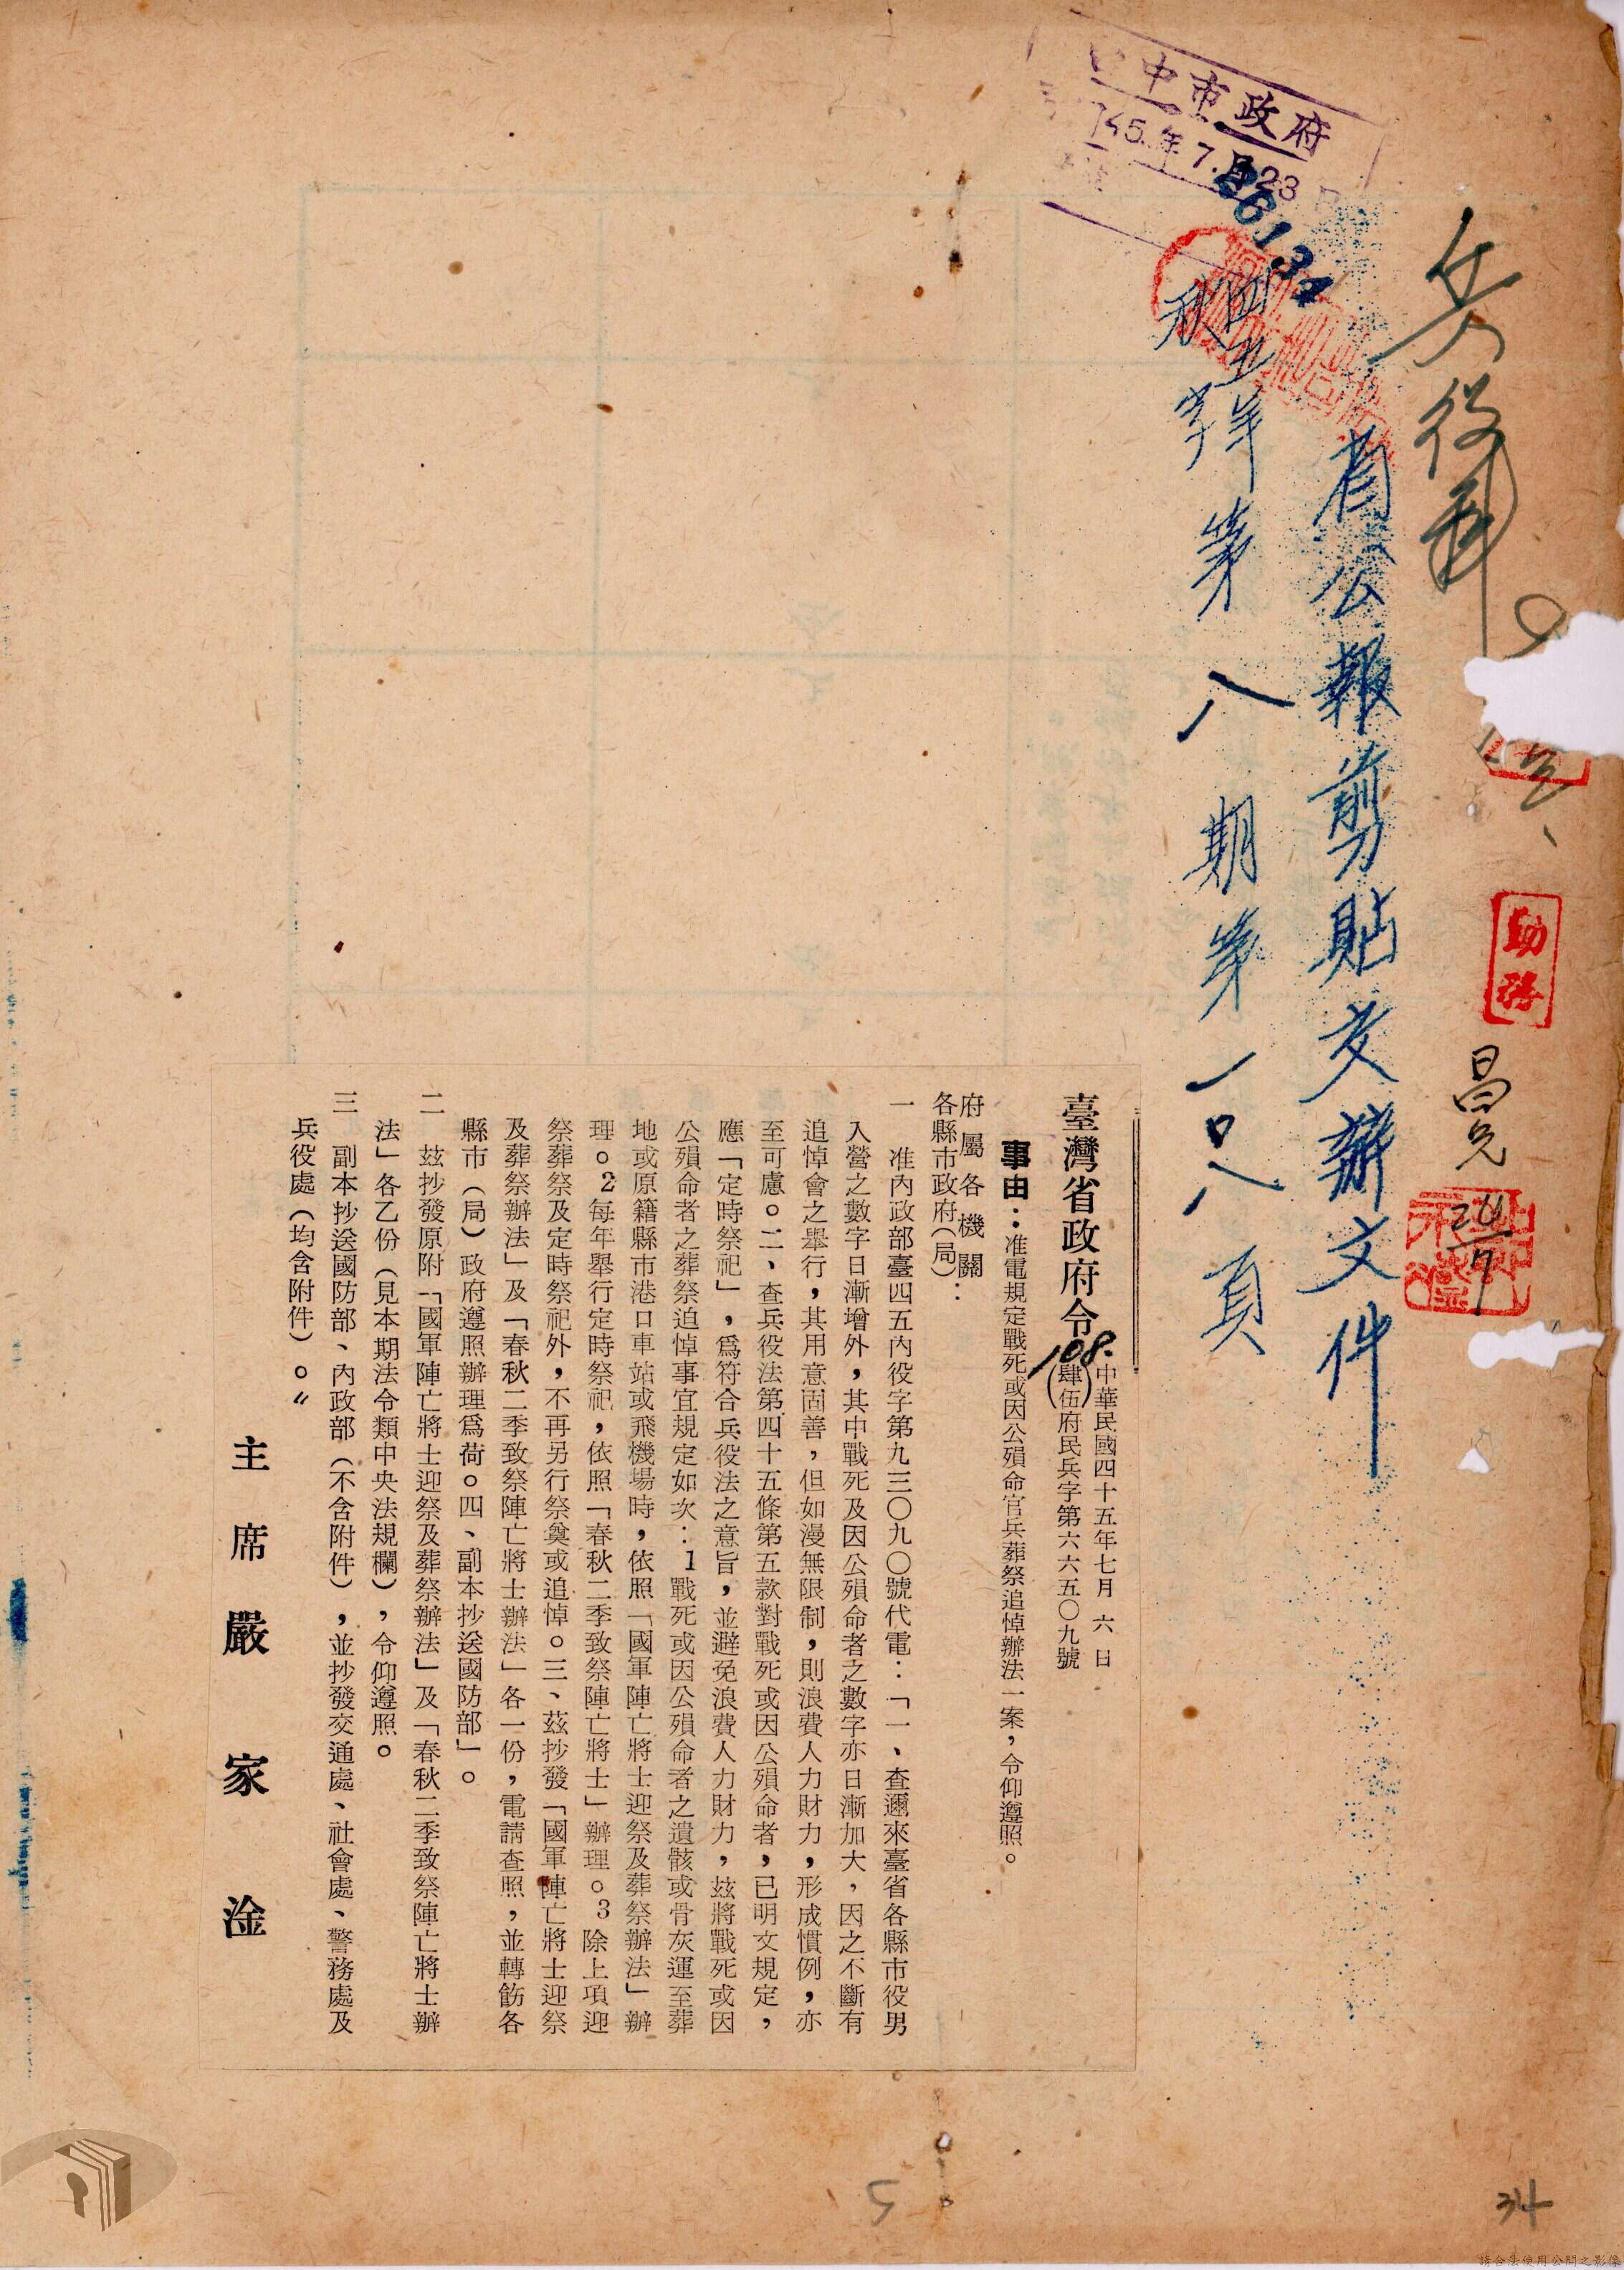 中市政府
45.年7.月23日
26134
兵役科
省公報剪貼交辦文件
四五年
秋字第八期第一〇八頁
勤務
昌兄
24/7
臺灣省政府令
108.
中華民國四十五年七月六日
(肆伍)府民兵字第六六五〇九號
事由：准電規定戰死或因公殞命官兵葬祭追悼辦法一案，令仰遵照。
府屬各機關：
各縣市政府(局)
一　准內政部臺四五內役字第九三〇九〇號代電：「一、查邇來臺省各縣市役男
入營之數字日漸增外，其中戰死及因公殞命者之數字亦日漸加大，因之不斷有
追悼會之舉行，其用意固善，但如漫無限制，則浪費人力財力，形成慣例，亦
至可慮。二、查兵役法第四十五條第五款對戰死或因公殞命者，已明文規定，
應「定時祭祀」，爲符合兵役法之意旨，並避免浪費人力財力，玆將戰死或因
公殞命者之葬祭追悼事宜規定如次：1戰死或因公殞命者之遺骸或骨灰運至葬
地或原籍縣市港口車站或飛機場時，依照「國軍陣亡將士迎祭及葬祭辦法」辦
理。2每年舉行定時祭祀，依照「春秋二季致祭陣亡將士」辦理。3除上項迎
祭葬祭及定時祭祀外，不再另行祭奠或追悼。三、茲抄發「國軍陣亡將士迎祭
及葬祭辦法」及「春秋二季致祭陣亡將士辦法」各一份，電請查照，並轉飭各
縣市（局）政府遵照辦理爲荷。四、副本抄送國防部」。
二　玆抄發原附「國軍陣亡將士迎祭及葬祭辦法」及「春秋二季致祭陣亡將士辦
法」各乙份（見本期法令類中央法規欄），令仰遵照。
三　副本抄送國防部、內政部（不含附件），並抄發交通處、社會處、警務處及
兵役處（均含附件）。〃
主席嚴家淦
5
34
請合法使用公開之影像